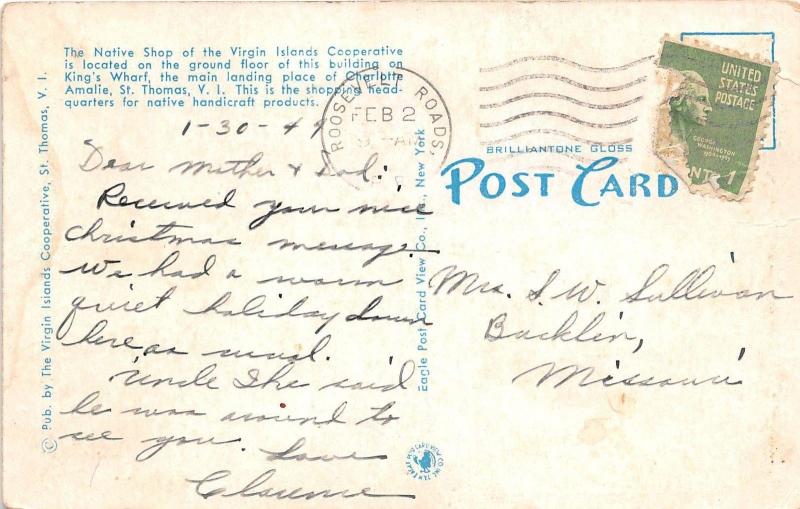 The Native Shop of the Virgin Islands Cooperative
is located on the ground floor of this building on
King's Wharf, the main landing place of Charlotte
Amalie, St. Thomas, V. I. This is the shopping head-
quarters for native handicraft products.
1-30-49
Dear Mother & Dad:
Received your nice
Christmas message.
We had a warm
quiet holiday down
here as usual.
Uncle Ike said
he was around to
see you. Love
Clarence
© Pub. by The Virgin Islands Cooperative, St. Thomas, V. I.
Eagle Post Card View Co., Inc., New York
ROOSEVELT ROADS,
FEB 2
AM
BRILLIANTONE GLOSS
POST CARD
UNITED
STATES
POSTAGE
GEORGE
WASHINGTON
1
Mrs. S. W. Sullivan
Bucklin,
Missouri